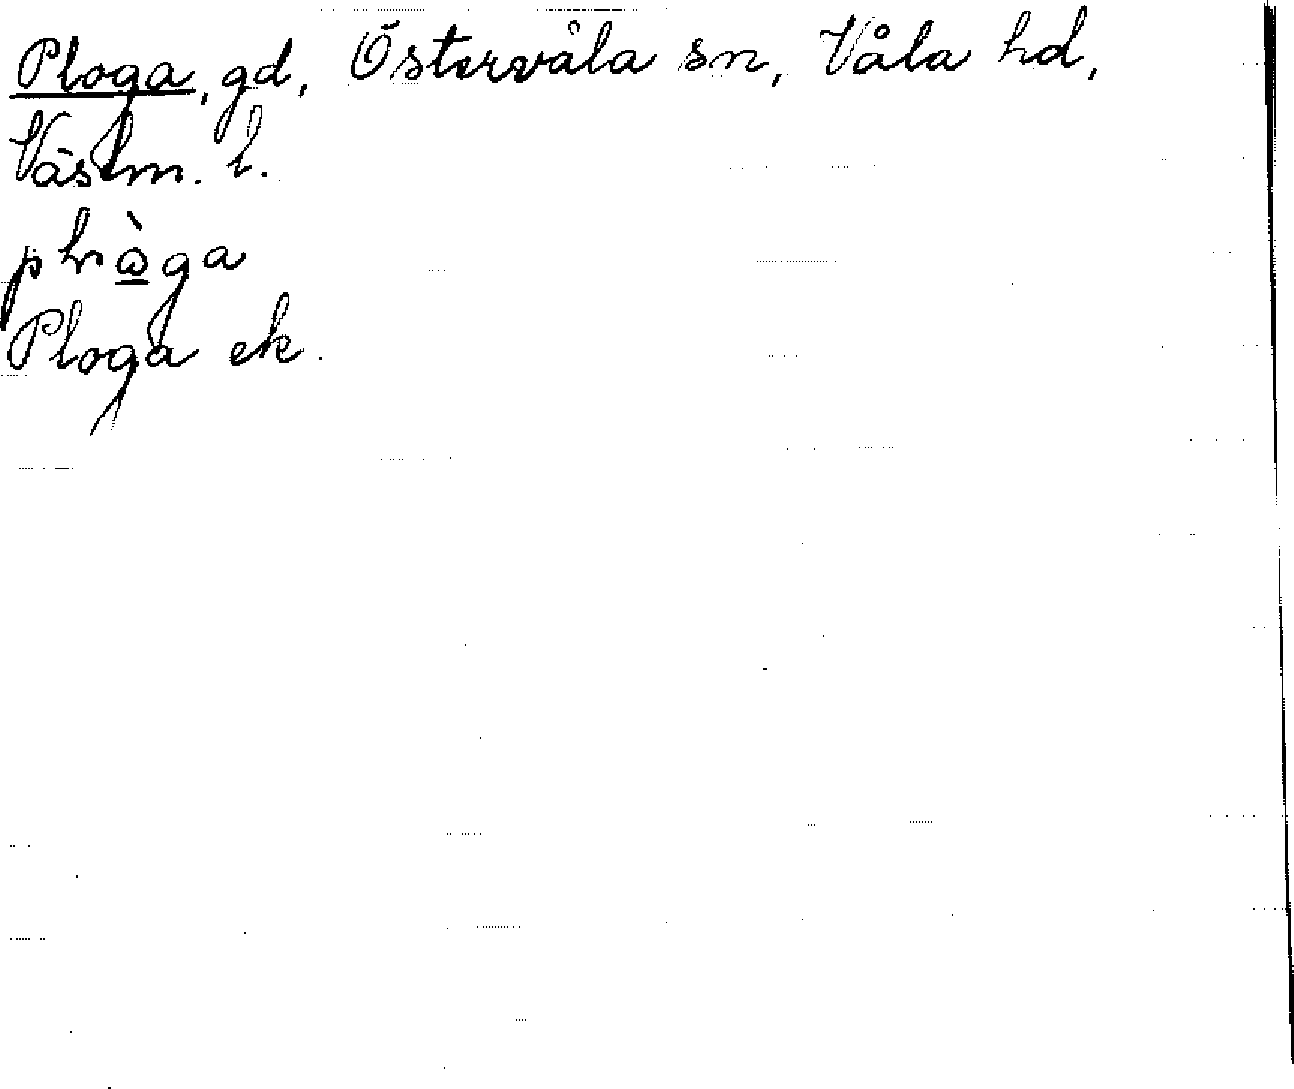 Ploga, gd, Östervåla sn, Våla hd,
Västm. l.
Ploga ek.